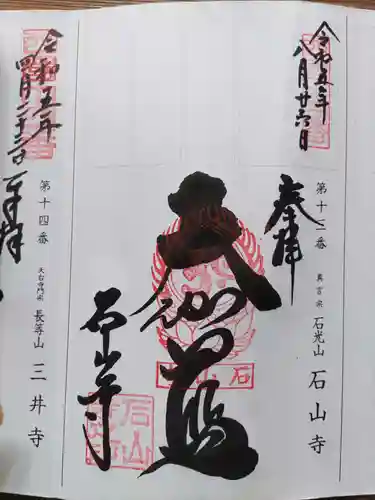 令和五年
八月廿六日
奉拝
第十三番
真言宗
石光山
石山寺
大伽藍
石山寺
令和五年
四月二十三日
奉拝
第十四番
天台寺門宗
長等山
三井寺